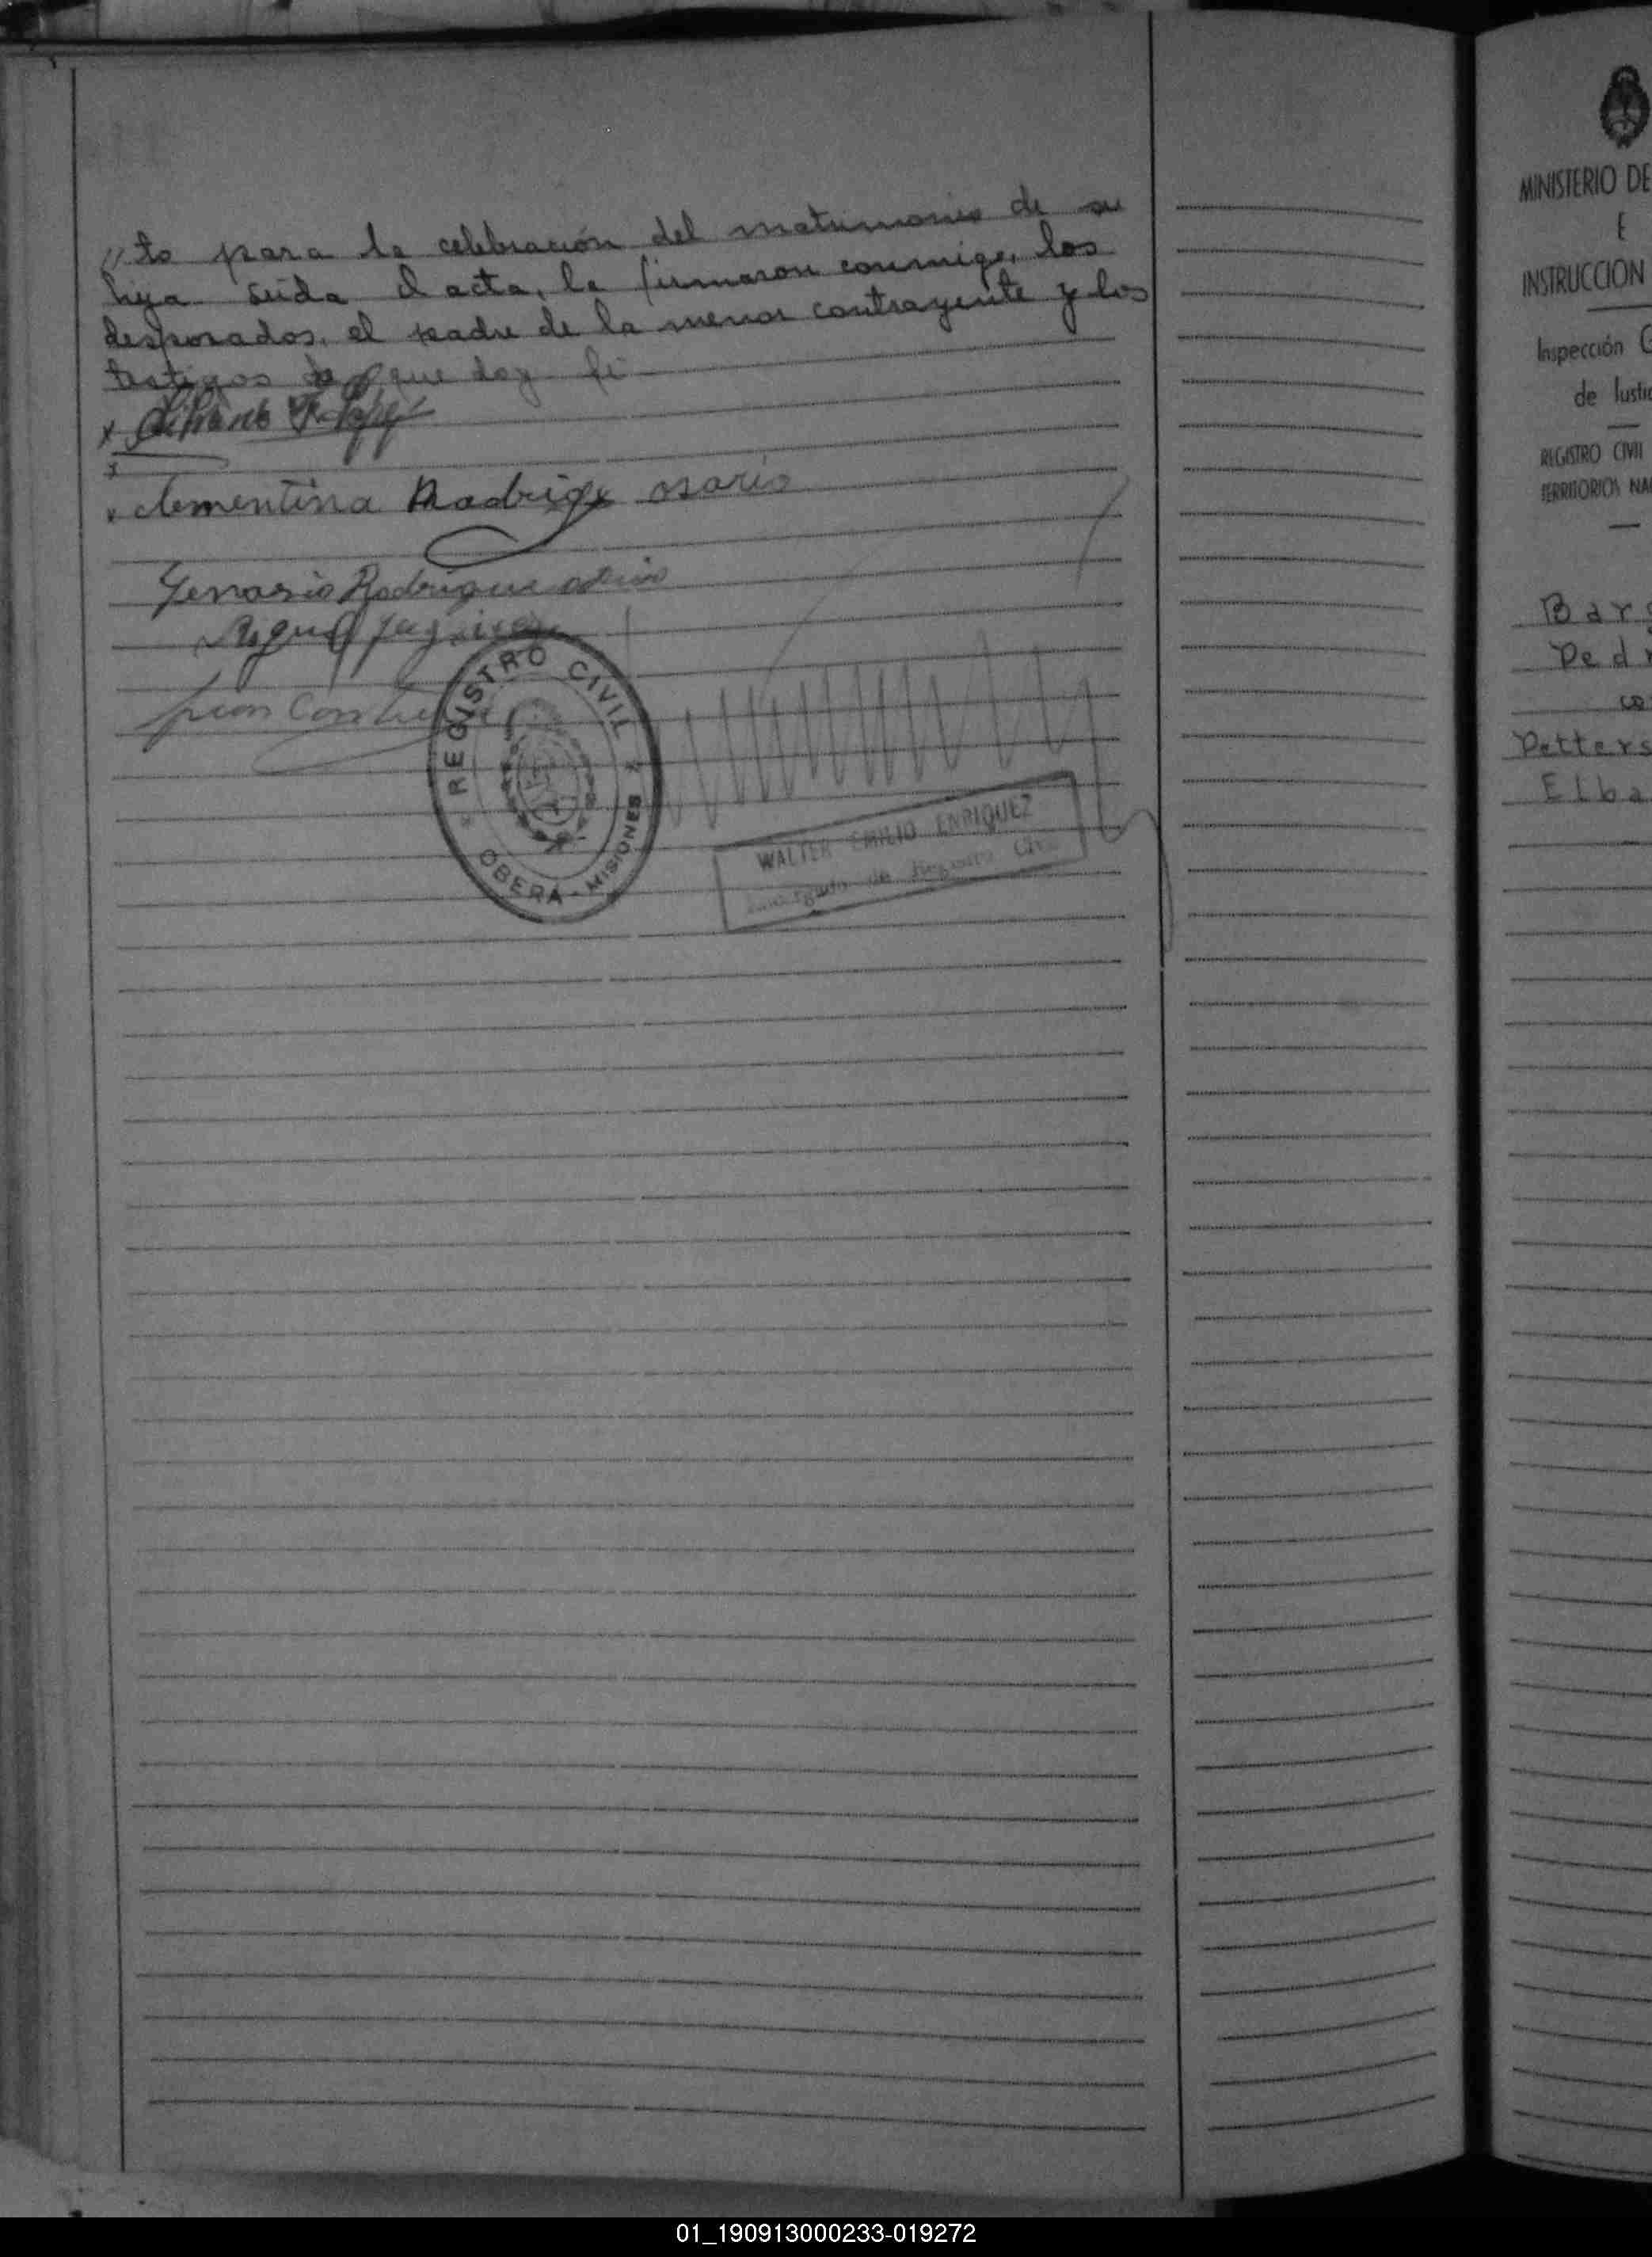 //to para la celebración del matrimonio de su
hija. Leída el acta, la firmaron conmigo, los
desposados, el padre de la menor contrayente y los
testigos de que doy fe
x
x
x Clementina Rodrigz osorio
Genario Rodrigue
Juan
REGISTRO CIVIL
OBERA - MISIONES
WALTER EMILIO ENRIQUEZ
Encargado de Registro Civil
MINISTERIO DE
E
INSTRUCCION
Inspección G
de Justic
REGISTRO CIVIL
TERRITORIOS NA
Bar
Ped
co
Petters
Elba
01_190913000233-019272